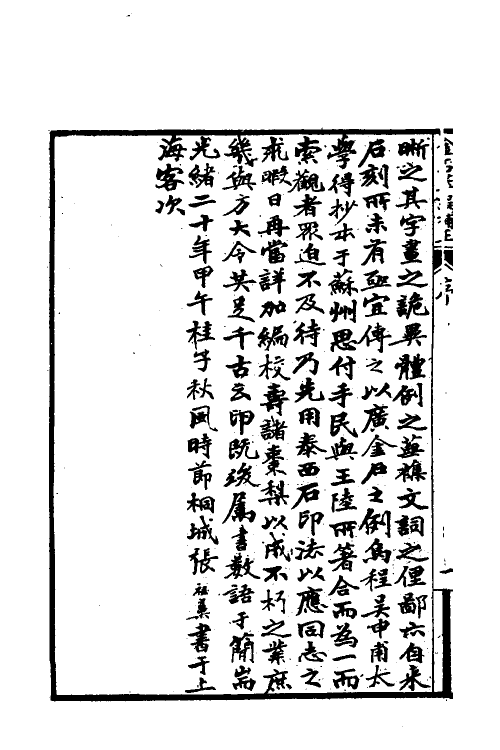 晰之其字畫之詭異體例之蕪襍文詞之俚鄙亦自来
石刻所未有亟宜傳之以廣金石之例烏程吴申甫太
學得抄本于蘇州思付手民與王陸所著合而為一而
索觀者眾迫不及待乃先用泰西石印法以應同志之
求暇日再當詳加編校壽諸棗梨以成不朽之業庶
幾與方大令共足千古云印既竣属書數語于簡耑
光緒二十年甲午桂子秋風時節桐城張祖翼書于上
海客次